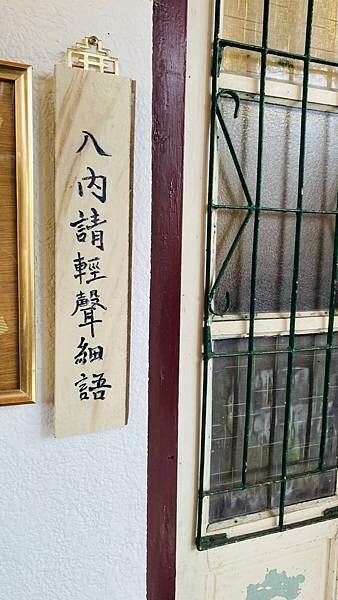 入內請輕聲細語